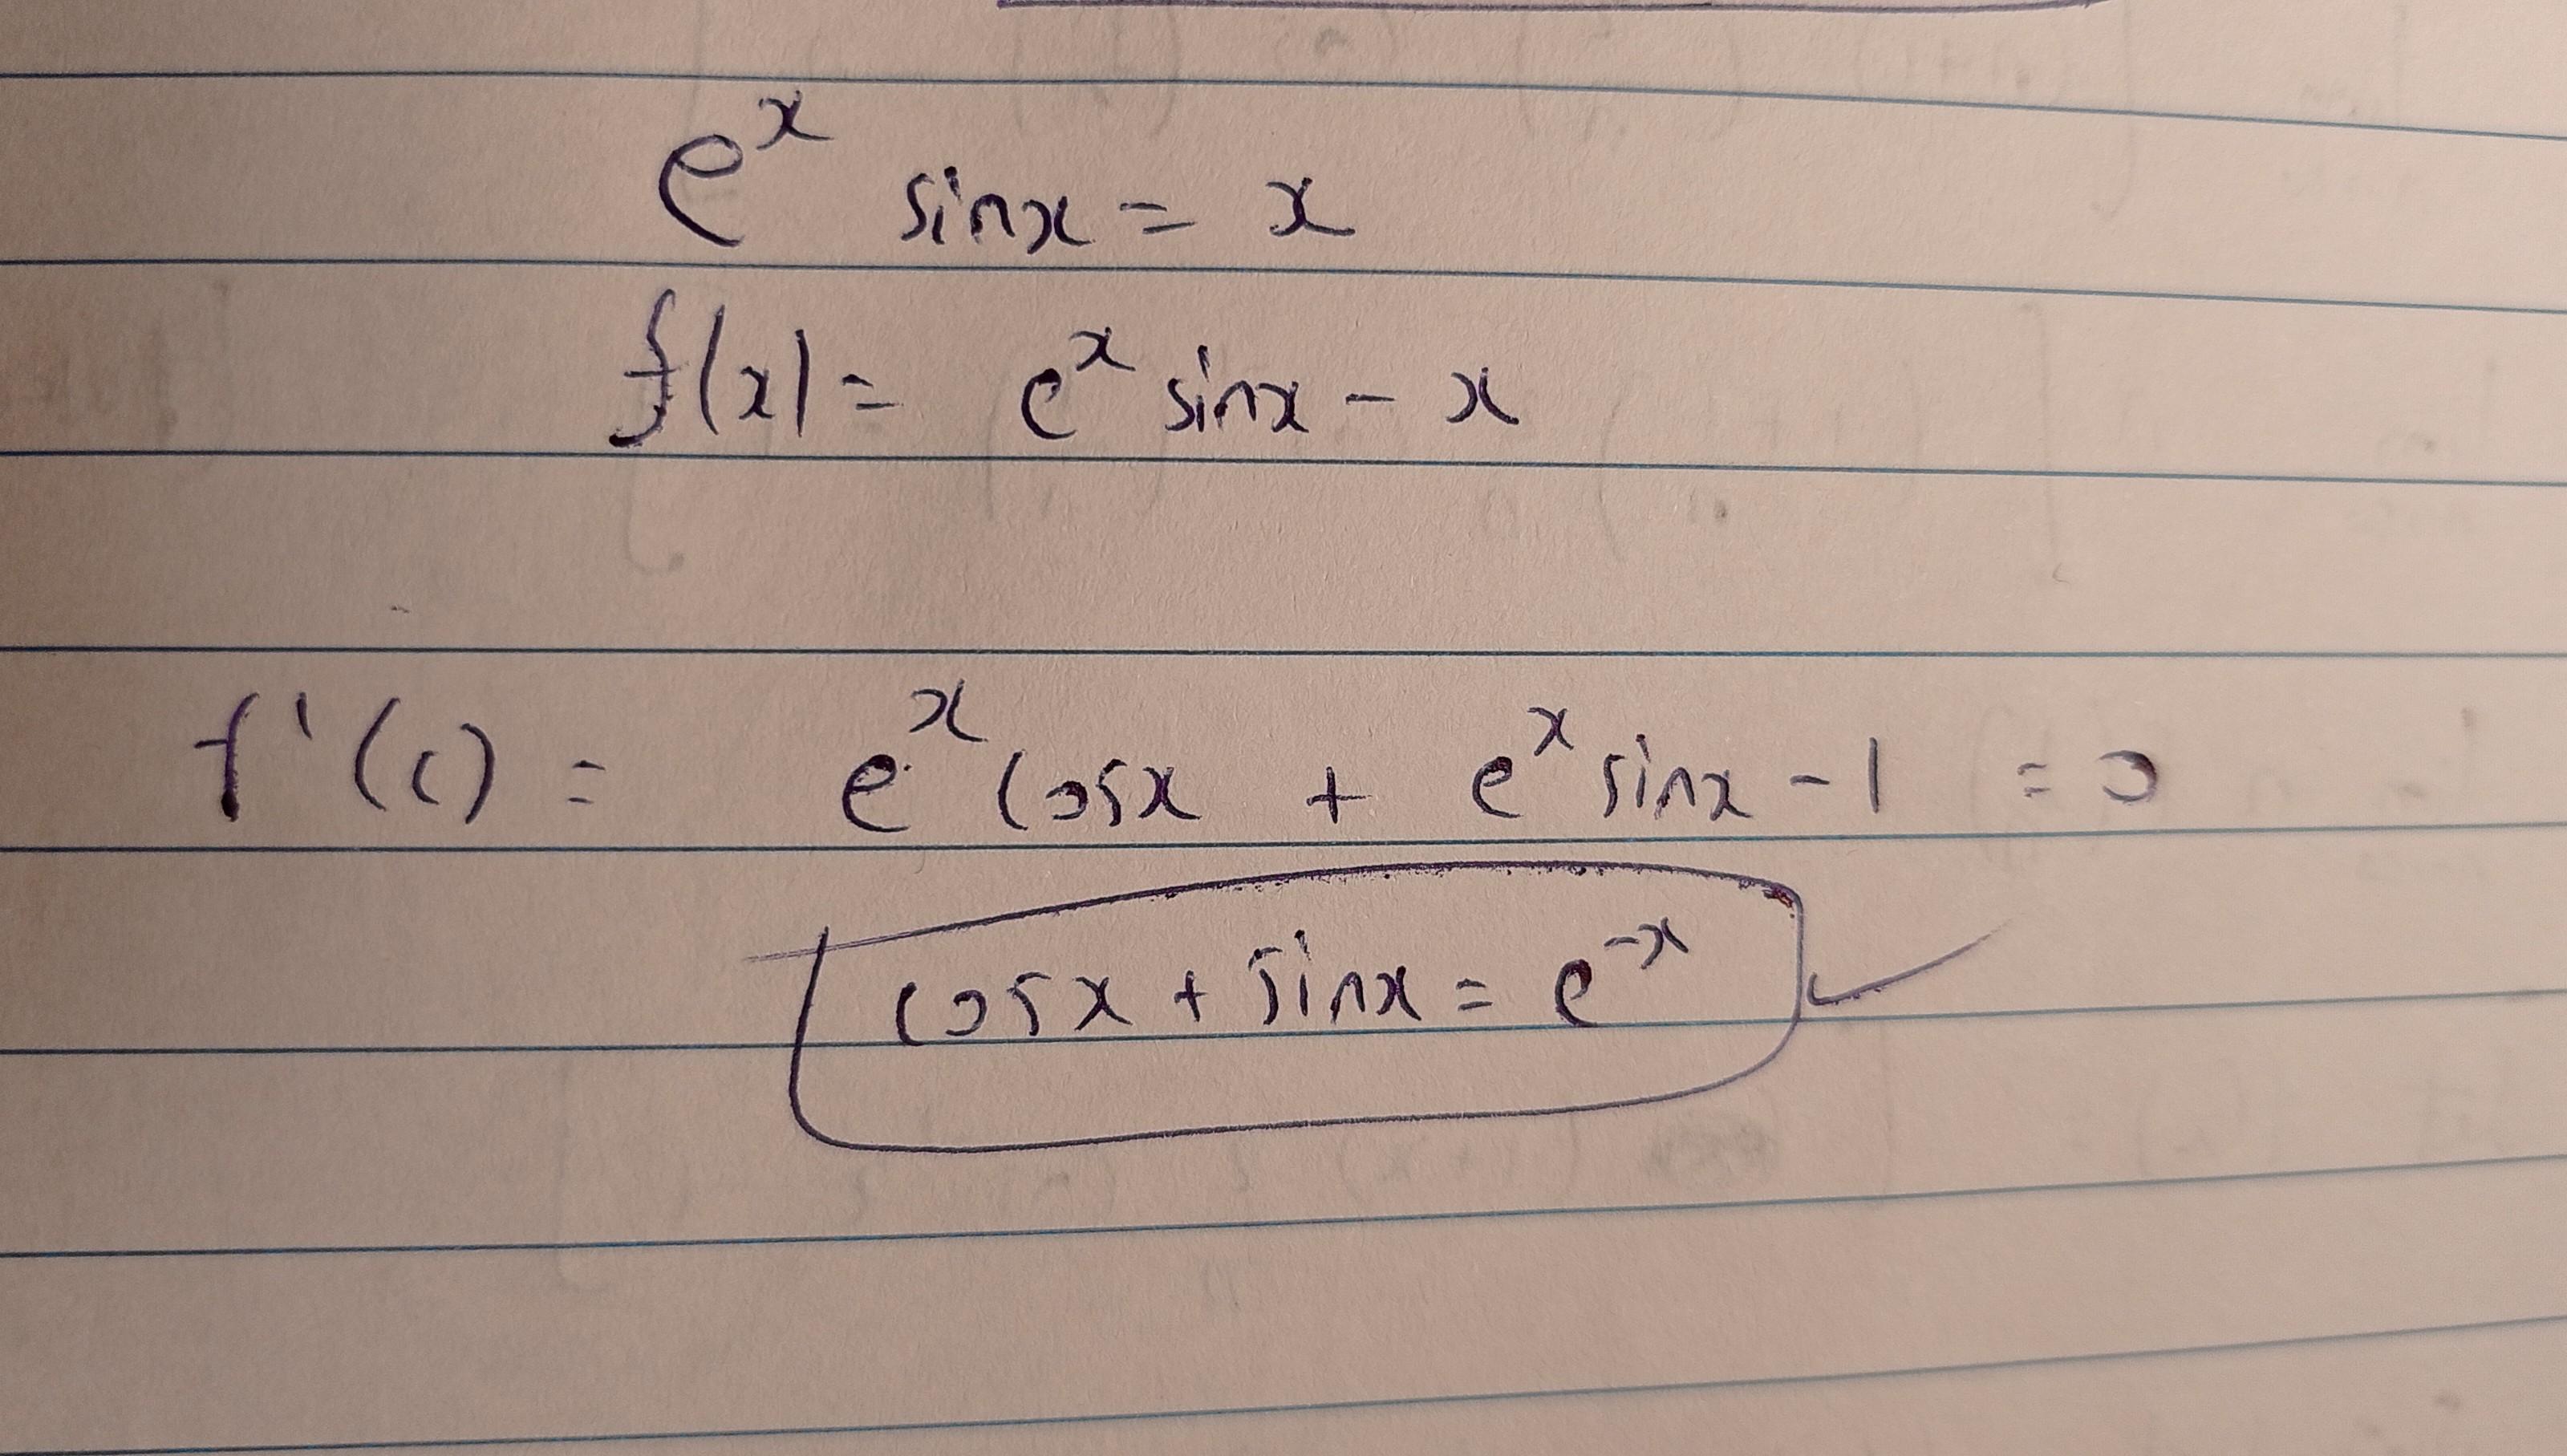 eˣ sinx = x
f(x) = eˣ sinx - x
f'(c) = eˣ cosx + eˣ sinx - 1 = 0
cosx + sinx = e⁻ˣ ✓